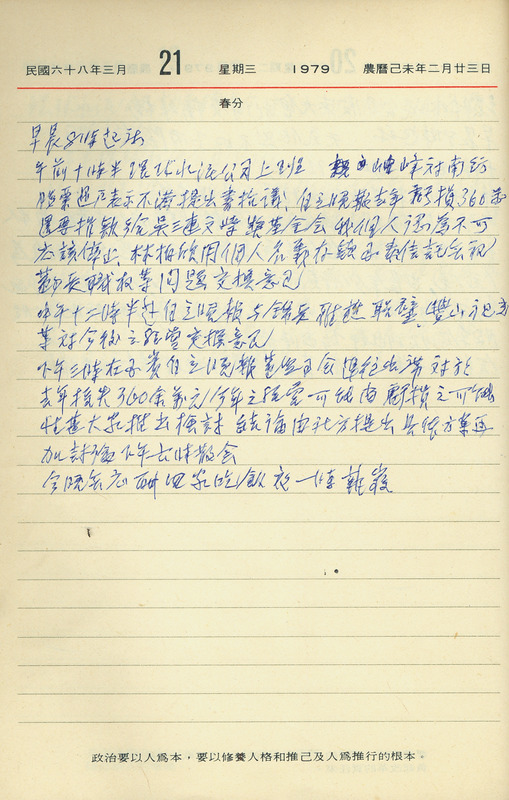 民國六十八年三月 21 星期三 1979 農曆己未年二月廿三日
春分
早晨8時起床
午前十時半環球水泥公司上班 峰對南紡
股票過戶表示不滿提出書抗議，自立晚報去年虧損360萬
還要捐款給吳三連文 獎基金會我個人認為不可
應該停止，林柏欣用個人名義存 信託公司
董長職權等問題交換意見
中午十二時半赴自立晚報與 聯璧，豐山
等對今後之經營交換意見
下午三時在 自立晚報 對於
去年損失360余萬元今年之經營可能有虧損之可能
大家提出檢討 結論由社方提出具體方案再
加討論下午六時散会
今晚 回家吃飯夜一時難寢
政治要以人爲本，要以修養人格和推己及人爲推行的根本。